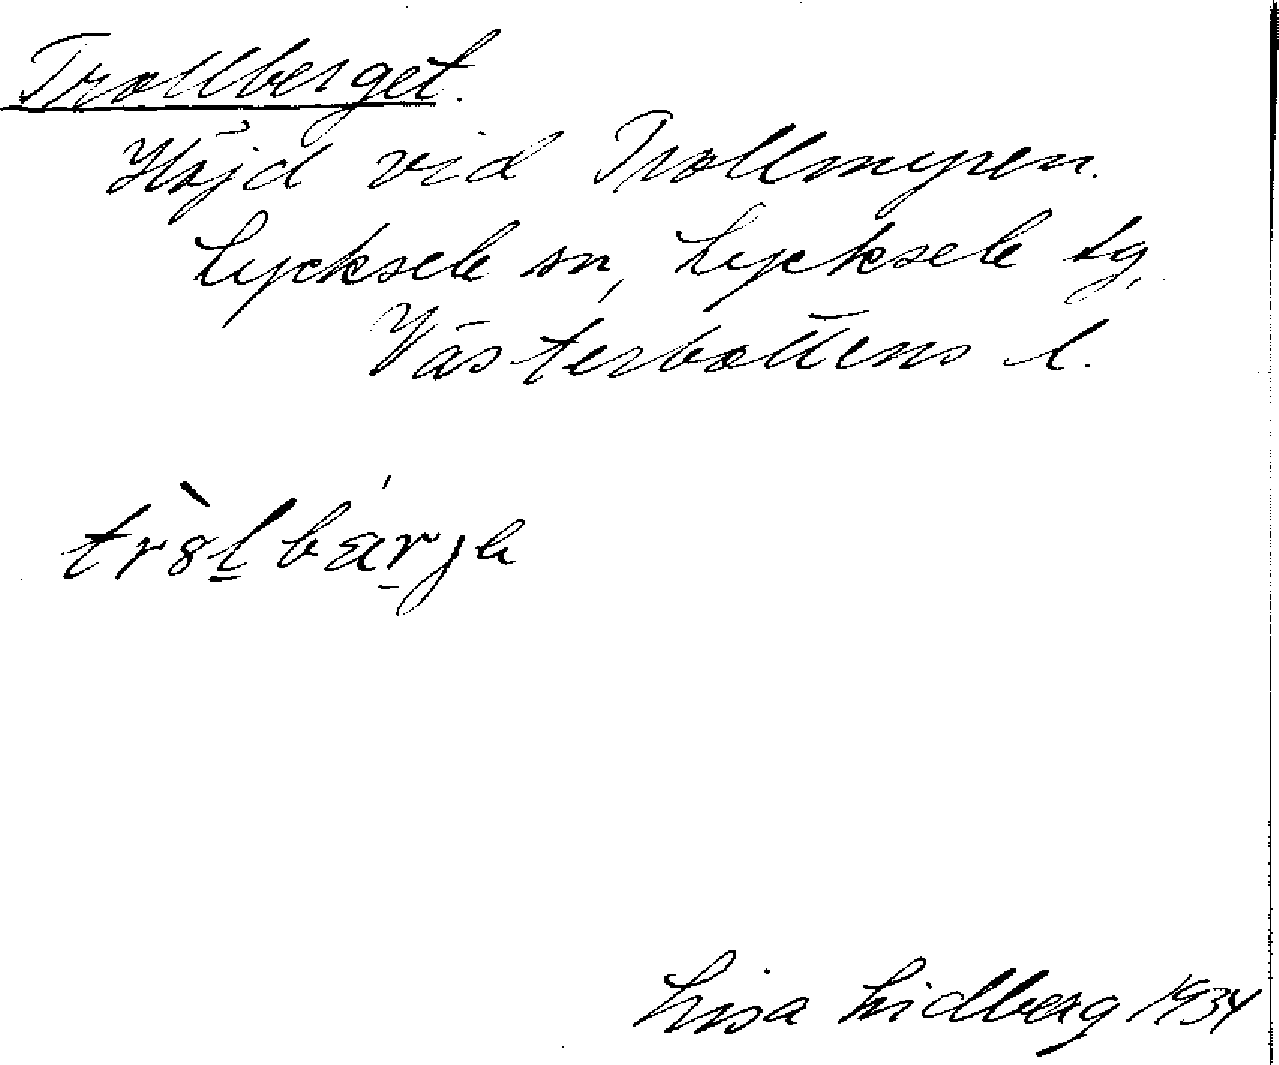 Trollberget.
Höjd vid Trollmyren.
Lycksele sn, Lycksele tg,
Västerbottens l.
Lisa Lidberg 1934